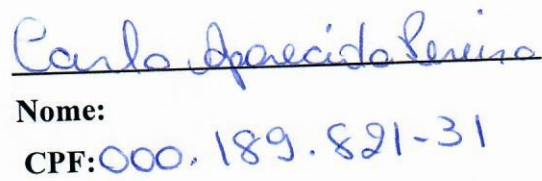 Carla Aparecida Pereira
Nome:
CPF:000.189.821-31